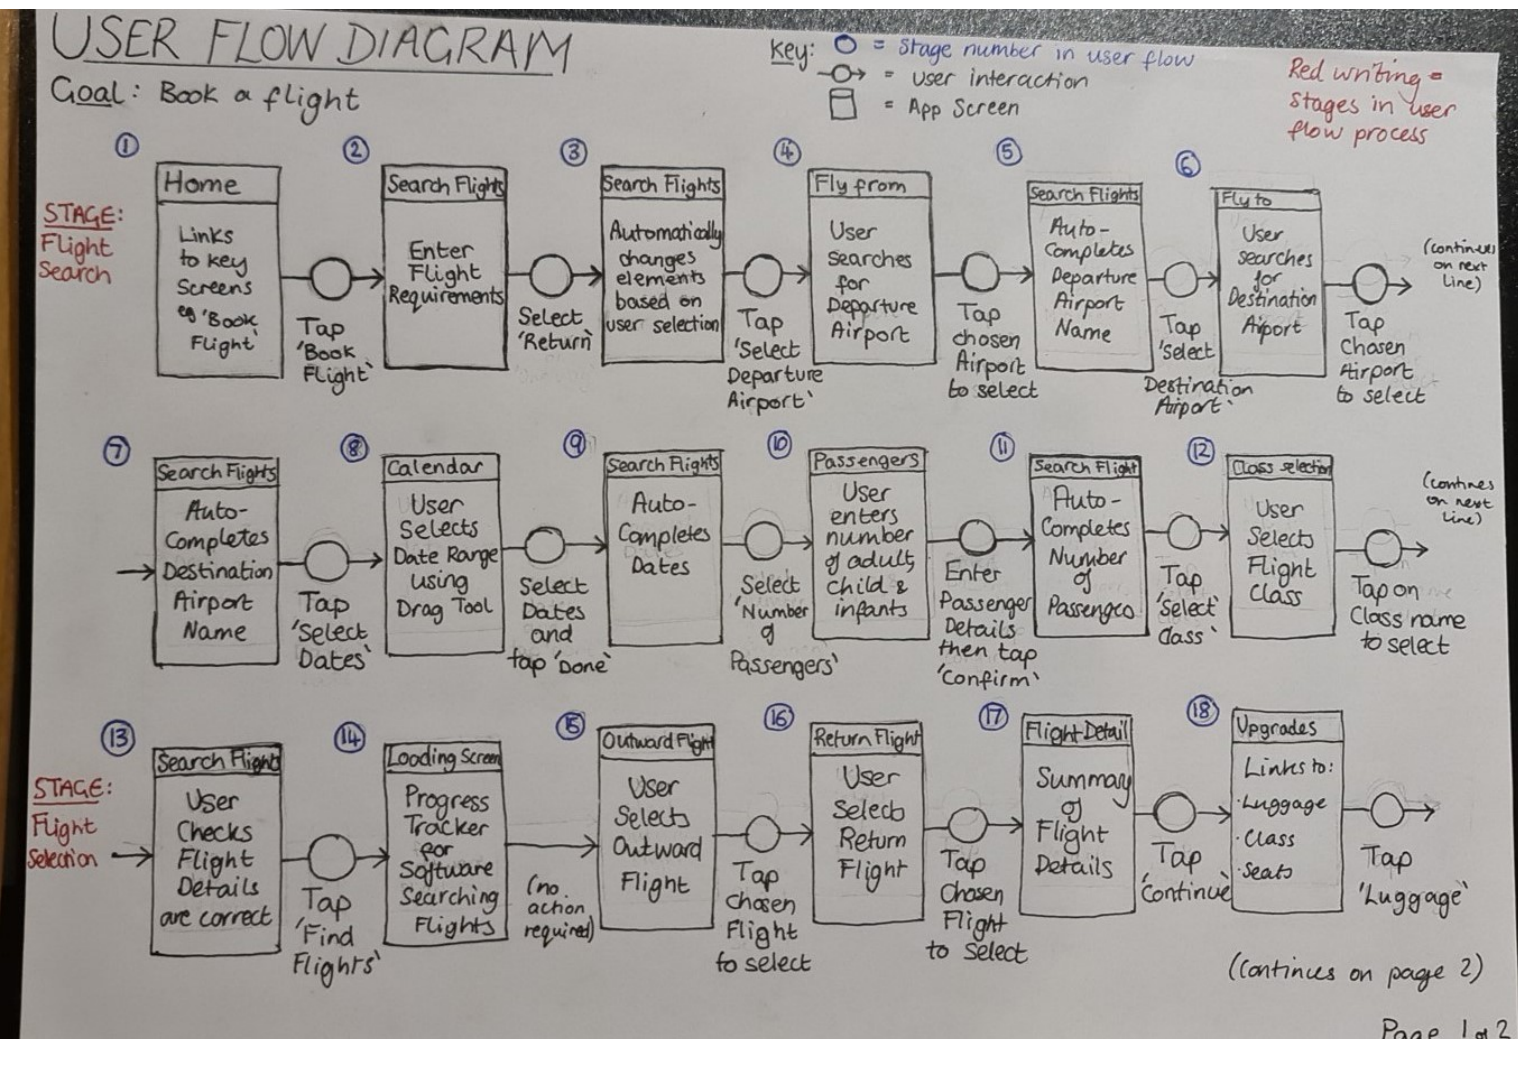 USER FLOW DIAGRAM
Goal: Book a flight
Key: O = Stage number in user flow
= User interaction
= App Screen
Red writing =
stages in user
flow process
STAGE:
Flight
Search
1
Home
Links
to key
Screens
eg 'Book
Flight'
Tap
'Book
Flight'
2
Search Flights
Enter
Flight
Requirements
Select
'Return'
3
Search Flights
Automatically
changes
elements
based on
user selection
Tap
'Select
Departure
Airport'
4
Fly from
User
searches
for
Departure
Airport
Tap
chosen
Airport
to select
5
Search Flights
Auto-
Completes
Departure
Airport
Name
Tap
'Select
Destination
Airport'
6
Fly to
User
searches
for
Destination
Aiport
Tap
Chosen
Airport
to select
(continues
on next
line)
7
Search Flights
Auto-
Completes
Destination
Airport
Name
Tap
'Select
Dates'
8
Calendar
User
Selects
Date Range
using
Drag Tool
Select
Dates
and
tap 'Done'
9
Search Flights
Auto-
Completes
Dates
Select
'Number
of
Passengers'
10
Passengers
User
enters
number
of adult,
child &
infants
Enter
Passenger
Details
then tap
'Confirm'
11
Search Flight
Auto-
Completes
Number
of
Tap
'Select
Class'
12
Class selection
User
Selects
Flight
Class
Tap on
Class name
to select
(contines
on next
line)
STAGE:
Flight
Selection
13
Search Flights
User
Checks
Flight
Details
are correct
Tap
'Find
Flights'
14
Loading Screen
Progress
Tracker
for
Software
Searching
Flights
(no
action
required)
15
Outward Flight
User
Selects
Outward
Flight
Tap
chosen
Flight
to select
16
Return Flight
User
Selects
Return
Flight
Tap
Chosen
Flight
to select
17
Flight Detail
Summary
of
Flight
Details
Tap
'Continue'
18
Upgrades
Links to:
·Luggage
·Class
·Seats
Tap
'Luggage'
(Continues on page 2)
Page 1 of 2